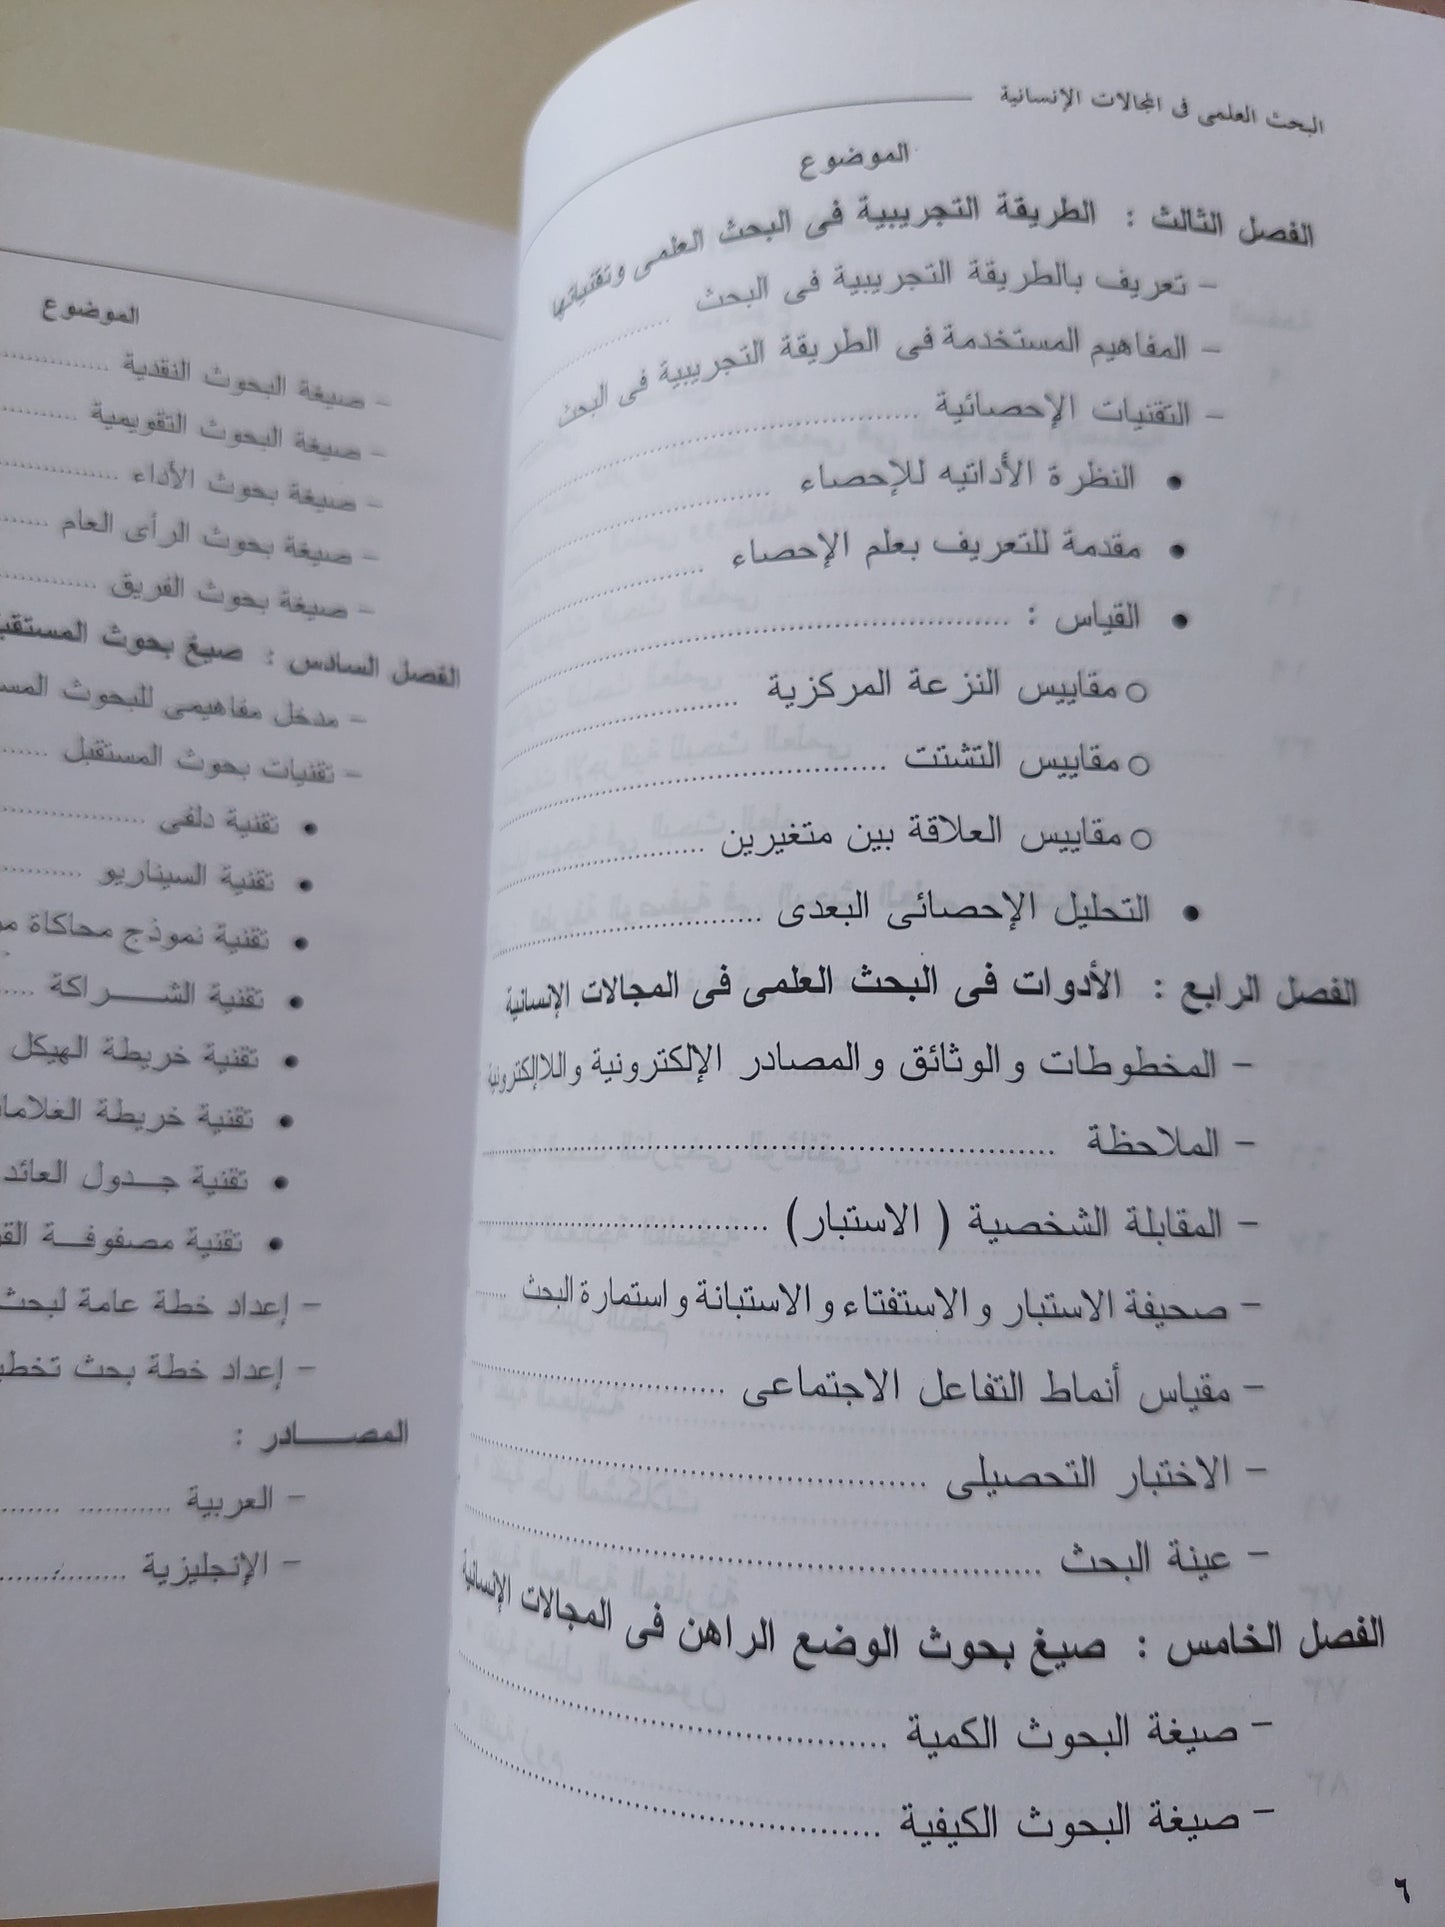 البحث العلمى فى المجالات الإنسانية
الموضوع
الفصل الثالث : الطريقة التجريبية فى البحث العلمى وتقنياتها
– تعريف بالطريقة التجريبية فى البحث
– المفاهيم المستخدمة فى الطريقة التجريبية فى البحث
– التقنيات الإحصائية
• النظرة الأداتيه للإحصاء
• مقدمة للتعريف بعلم الإحصاء
• القياس :
○ مقاييس النزعة المركزية
○ مقاييس التشتت
○ مقاييس العلاقة بين متغيرين
• التحليل الإحصائى البعدى
الفصل الرابع : الأدوات فى البحث العلمى فى المجالات الإنسانية
– المخطوطات والوثائق والمصادر الإلكترونية واللاإلكترونية
– الملاحظة
– المقابلة الشخصية ( الاستبار )
– صحيفة الاستبار والاستفتاء والاستبانة واستمارة البحث
– مقياس أنماط التفاعل الاجتماعى
– الاختبار التحصيلى
– عينة البحث
الفصل الخامس : صيغ بحوث الوضع الراهن فى المجالات الإنسانية
– صيغة البحوث الكمية
– صيغة البحوث الكيفية
٦
الموضوع
– صيغة البحوث النقدية
– صيغة البحوث التقويمية
– صيغة بحوث الأداء
– صيغة بحوث الرأى العام
– صيغة بحوث الفريق
الفصل السادس : صيغ بحوث
– مدخل مفاهيمى للبحوث
– تقنيات بحوث المستقبل
• تقنية دلفى
• تقنية السيناريو
• تقنية نموذج محاكاة
• تقنية الشراكة
• تقنية خريطة الهيكل
• تقنية خريطة
• تقنية جدول العائد
• تقنية مصفوفة
– إعداد خطة عامة لبحث
– إعداد خطة بحث
المصادر :
– العربية
– الإنجليزية